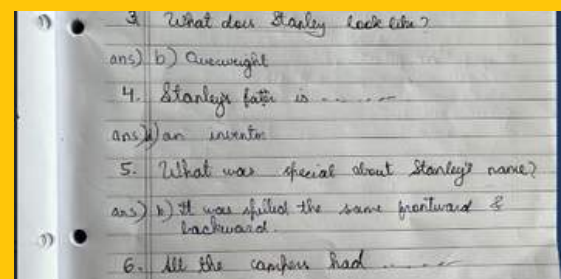 3. What does Stanley look like?
ans) b) Overweight
4. Stanley's fater is ......
ans) a) an inventor
5. What was special about Stanley's name?
ans) b) It was spelled the same frontward &
backward.
6. All the campers had ......